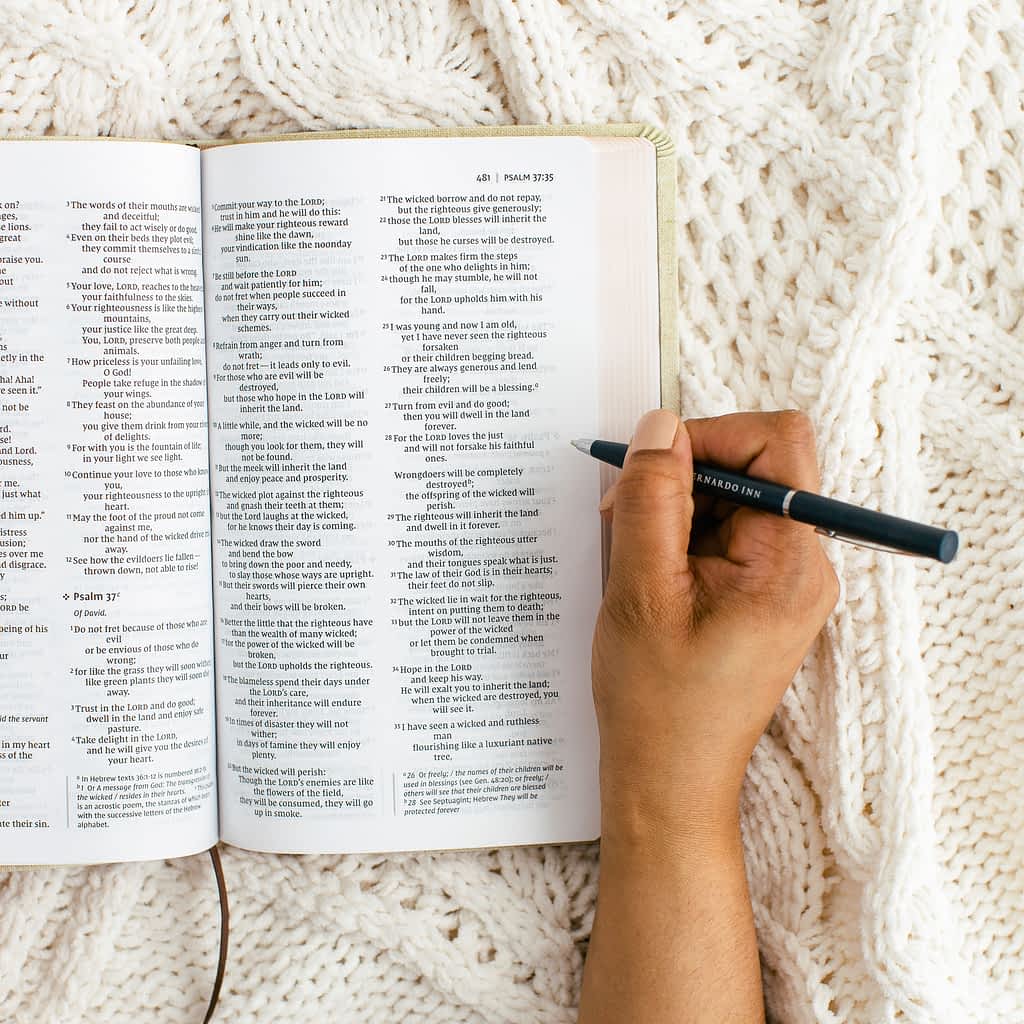 k on?
ages,
se lions.
great
praise you.
me
out
e without
s,
ns
etly in the
ha! Aha!
e seen it."
not be
rd.
se!
and Lord.
ousness,
r me.
just what
ed him up."
istress
usion;
es over me
nd disgrace.
y
s;
ORD be
being of his
ur
id the servant
in my heart
ss of the
ter
ate their sin.
3 The words of their mouths are wicked
and deceitful;
they fail to act wisely or do good.
4 Even on their beds they plot evil;
they commit themselves to a sinful
course
and do not reject what is wrong.
5 Your love, LORD, reaches to the heavens
your faithfulness to the skies.
6 Your righteousness is like the highest
mountains,
your justice like the great deep.
You, LORD, preserve both people and
animals.
7 How priceless is your unfailing love,
O God!
People take refuge in the shadow of
your wings.
8 They feast on the abundance of your
house;
you give them drink from your river
of delights.
9 For with you is the fountain of life;
in your light we see light.
10 Continue your love to those who know
you,
your righteousness to the upright in
heart.
11 May the foot of the proud not come
against me,
nor the hand of the wicked drive me
away.
12 See how the evildoers lie fallen—
thrown down, not able to rise!
Psalm 37c
Of David.
1 Do not fret because of those who are
evil
or be envious of those who do
wrong;
2 for like the grass they will soon wither,
like green plants they will soon die
away.
3 Trust in the LORD and do good;
dwell in the land and enjoy safe
pasture.
4 Take delight in the LORD,
and he will give you the desires of
your heart.
b In Hebrew texts 36:1-12 is numbered 36:2-13.
b 1 Or A message from God: The transgression of
the wicked / resides in their hearts. c This
is an acrostic poem, the stanzas of which begin
with the successive letters of the Hebrew
alphabet.
481 | PSALM 37:35
5 Commit your way to the LORD;
trust in him and he will do this:
6 He will make your righteous reward
shine like the dawn,
your vindication like the noonday
sun.
7 Be still before the LORD
and wait patiently for him;
do not fret when people succeed in
their ways,
when they carry out their wicked
schemes.
8 Refrain from anger and turn from
wrath;
do not fret—it leads only to evil.
9 For those who are evil will be
destroyed,
but those who hope in the LORD will
inherit the land.
10 A little while, and the wicked will be no
more;
though you look for them, they will
not be found.
11 But the meek will inherit the land
and enjoy peace and prosperity.
12 The wicked plot against the righteous
and gnash their teeth at them;
13 but the Lord laughs at the wicked,
for he knows their day is coming.
14 The wicked draw the sword
and bend the bow
to bring down the poor and needy,
to slay those whose ways are upright.
15 But their swords will pierce their own
hearts,
and their bows will be broken.
16 Better the little that the righteous have
than the wealth of many wicked;
17 for the power of the wicked will be
broken,
but the LORD upholds the righteous.
18 The blameless spend their days under
the LORD's care,
and their inheritance will endure
forever.
19 In times of disaster they will not
wither;
in days of famine they will enjoy
plenty.
20 But the wicked will perish:
Though the LORD's enemies are like
the flowers of the field,
they will be consumed, they will go
up in smoke.
21 The wicked borrow and do not repay,
but the righteous give generously;
22 those the LORD blesses will inherit the
land,
but those he curses will be destroyed.
23 The LORD makes firm the steps
of the one who delights in him;
24 though he may stumble, he will not
fall,
for the LORD upholds him with his
hand.
25 I was young and now I am old,
yet I have never seen the righteous
forsaken
or their children begging bread.
26 They are always generous and lend
freely;
their children will be a blessing.a
27 Turn from evil and do good;
then you will dwell in the land
forever.
28 For the LORD loves the just
and will not forsake his faithful
ones.
Wrongdoers will be completely
destroyedb;
the offspring of the wicked will
perish.
29 The righteous will inherit the land
and dwell in it forever.
30 The mouths of the righteous utter
wisdom,
and their tongues speak what is just.
31 The law of their God is in their hearts;
their feet do not slip.
32 The wicked lie in wait for the righteous,
intent on putting them to death;
33 but the LORD will not leave them in the
power of the wicked
or let them be condemned when
brought to trial.
34 Hope in the LORD
and keep his way.
He will exalt you to inherit the land;
when the wicked are destroyed, you
will see it.
35 I have seen a wicked and ruthless
man
flourishing like a luxuriant native
tree,
a 26 Or freely; / the names of their children will be
used in blessings (see Gen. 48:20); or freely; /
others will see that their children are blessed
b 28 See Septuagint; Hebrew They will be
protected forever
ERNARDO INN